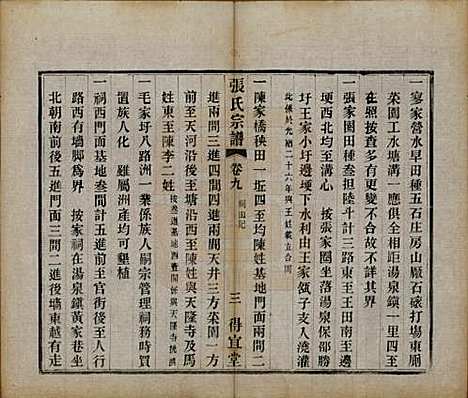 一寥家營水旱田種五石庄房山厰石磙打場東厠
菜園工水塘溝一應俱全相距湯泉鎮一里四至
在照按查多有更變不合古故不詳其界
一張家園田種叁担陸斗計三路東至王田南至邊
埂西北均至溝心 按張家圈坐落湯泉保邵勝
圩王家小圩邊埂下水利由王家氹子支人澆灌
此係於光緒二十六年與王姓載立合同
一陳家橋秧田一坵四至均陳姓基地門面兩間二
進兩間三進四間四進兩間天井三方菜園一方
前左至天河沿後右至塘沿與天隆寺及馬
姓東至陳李二姓
一毛家圩八路洲一業係族人嗣宗管理祠務時買
置族人化 雖屬洲產均可墾植
一祠西門面基地叁間計五進前至官街後至人行
路西有方形界石為界在湯泉鎮黃家巷坐
北朝南前左進門面三間二進後墻東越有走
張氏宗譜
卷九
祠田記
三
得宜堂